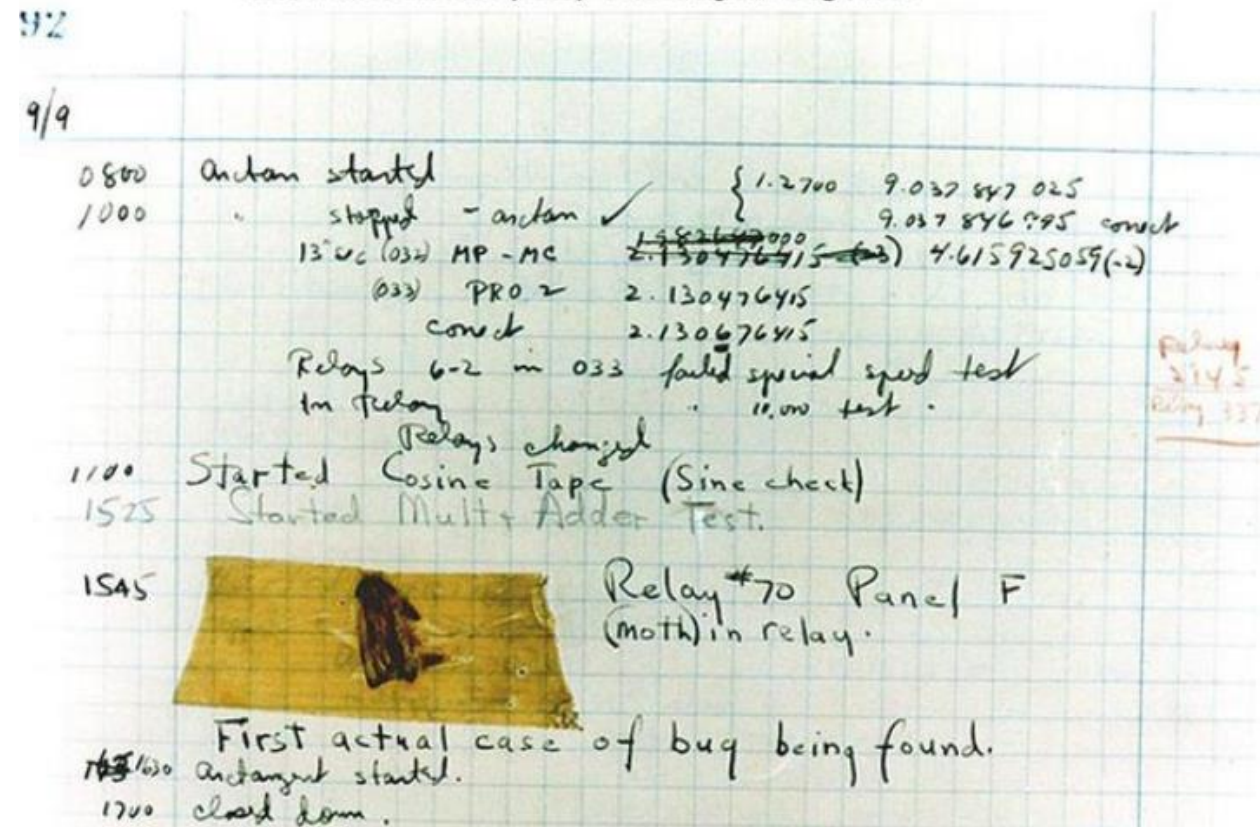 92
9/9
0800 arctan started { 1.2700 9.037 847 025
1000 " stopped - arctan ✓ 9.037 846 995 correct
13"uc (032) MP - MC 1.982647000 2.130476415 (-3) 4.615925059(-2)
(033) PRO 2 2.130476415
correct 2.130676415
Relays 6-2 in 033 failed special speed test
In Relay " 10,000 test .
Relays changed
1100 Started Cosine Tape (Sine check)
1525 Started Mult + Adder Test.
1545 Relay #70 Panel F
(moth) in relay.
First actual case of bug being found.
1630 arctangent started.
1700 closed down.
Relay
2145
Relay 337